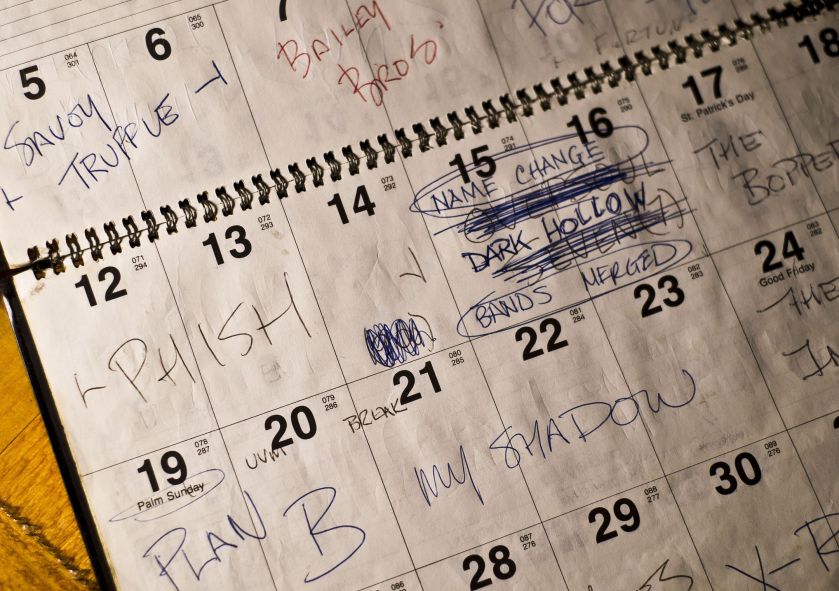 5 064 301
6 065 300
7
SAVOY
TRUFFLE
BAILEY
BROS.
12 071 294
13 072 293
14 073 292
15 074 291
16 075 290
17 076 289
St. Patrick's Day
18
PHISH
NAME CHANGE
DARK HOLLOW
BANDS MERGED
THE
BOPPE
19 078 287
Palm Sunday
20 079 286
21 080 285
22 081 284
23 082 283
24 083 282
Good Friday
UVM
BREAK
PLAN B
MY SHADOW
THE
IN
28 087 278
29 088 277
30 089 276
086
X-R